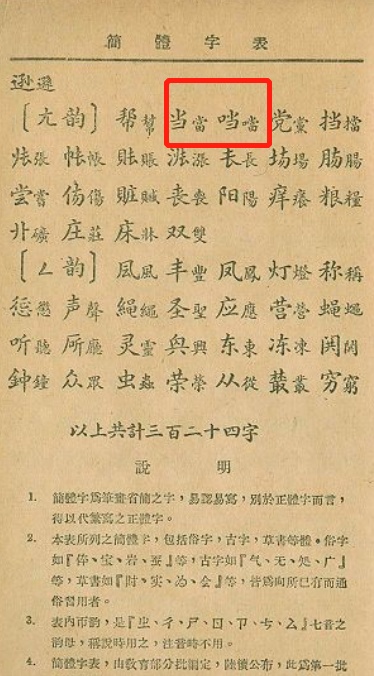 簡體字表
逊遜
〔ㄤ韵〕帮幫 当當 㕸噹 党黨 挡擋
张張 帐帳 账賬 涨漲 长長 场場 肠腸
尝嘗 伤傷 赃贓 丧喪 阳陽 痒癢 粮糧
庄莊 床牀 双雙
〔ㄥ韵〕凨風 丰豐 凤鳳 灯燈 称稱
惩懲 声聲 绳繩 圣聖 应應 营營 蝇蠅
听聽 厛廳 灵靈 兴興 东東 冻凍
鐘 众眾 虫蟲 荣榮 从從 叢 穷窮
以上共計三百二十四字
說明
1. 簡體字爲筆畫省簡之字，易認易寫，別於正體字而言，
得以代繁寫之正體字。
2. 本表所列之簡體字，包括俗字，古字，草書等體。俗字
如『体、宝、岩、蚕』等，古字如『气、无、処、广』
等，草書如『时、实、为、会』等，皆爲向所已有而通
俗習用者。
3. 表內市韵，是『ㄓ、ㄔ、ㄕ、ㄖ、ㄗ、ㄘ、ㄙ』七音之
韵母，稱說時用之，注音時不用。
4. 簡體字表，由敎育部分批制定，陸續公布，此爲第一批